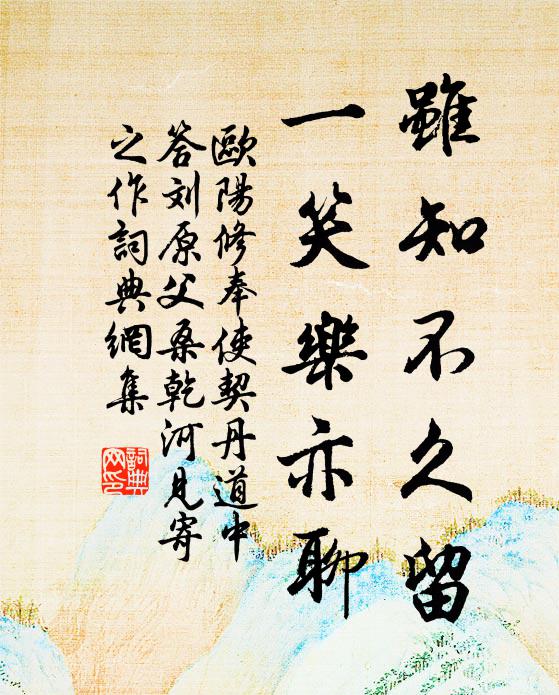 雖知不久留
一笑樂亦聊
歐陽修奉使契丹道中
答刘原父桑乾河見寄
之作詞典網集
詞典网印